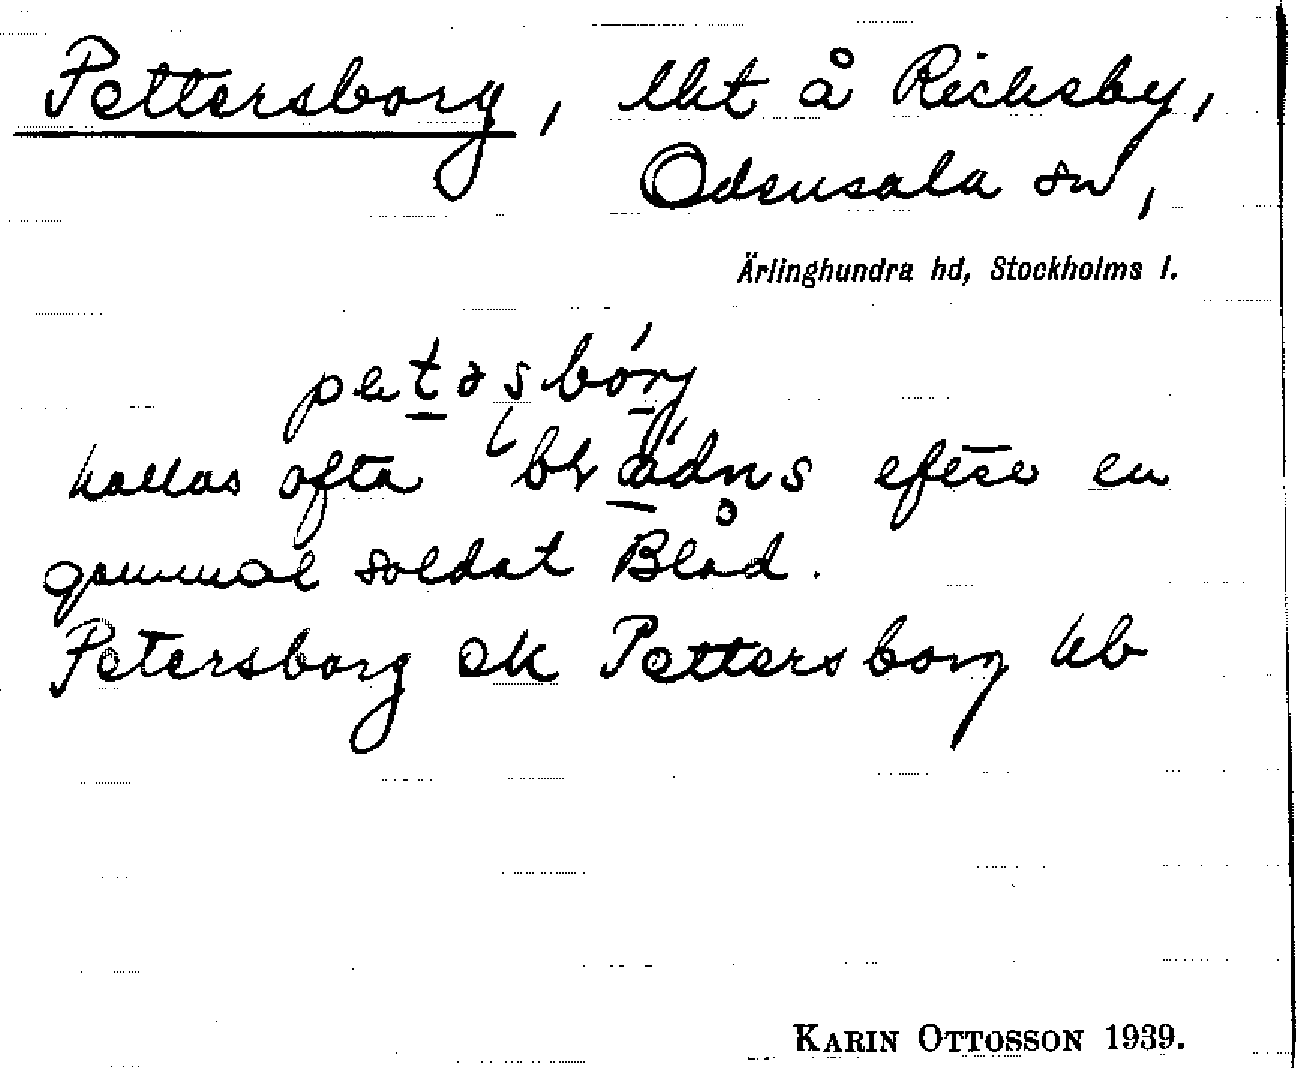 Pettersborg, lht å Ricksby,
Odensala sn,
Ärlinghundra hd, Stockholms l.
petəsbórj
kallas ofta blådns efter en
gammal soldat Blåd.
Petersborg ek Pettersborg hb
KARIN OTTOSSON 1939.